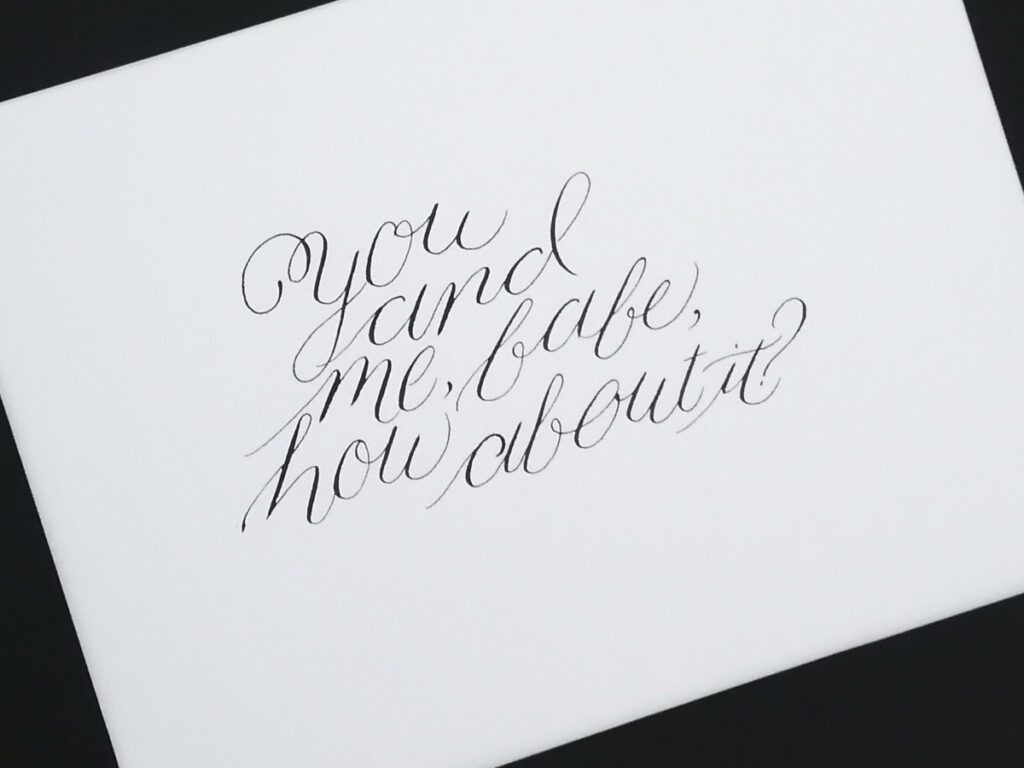 You
and
me, babe,
how about it?